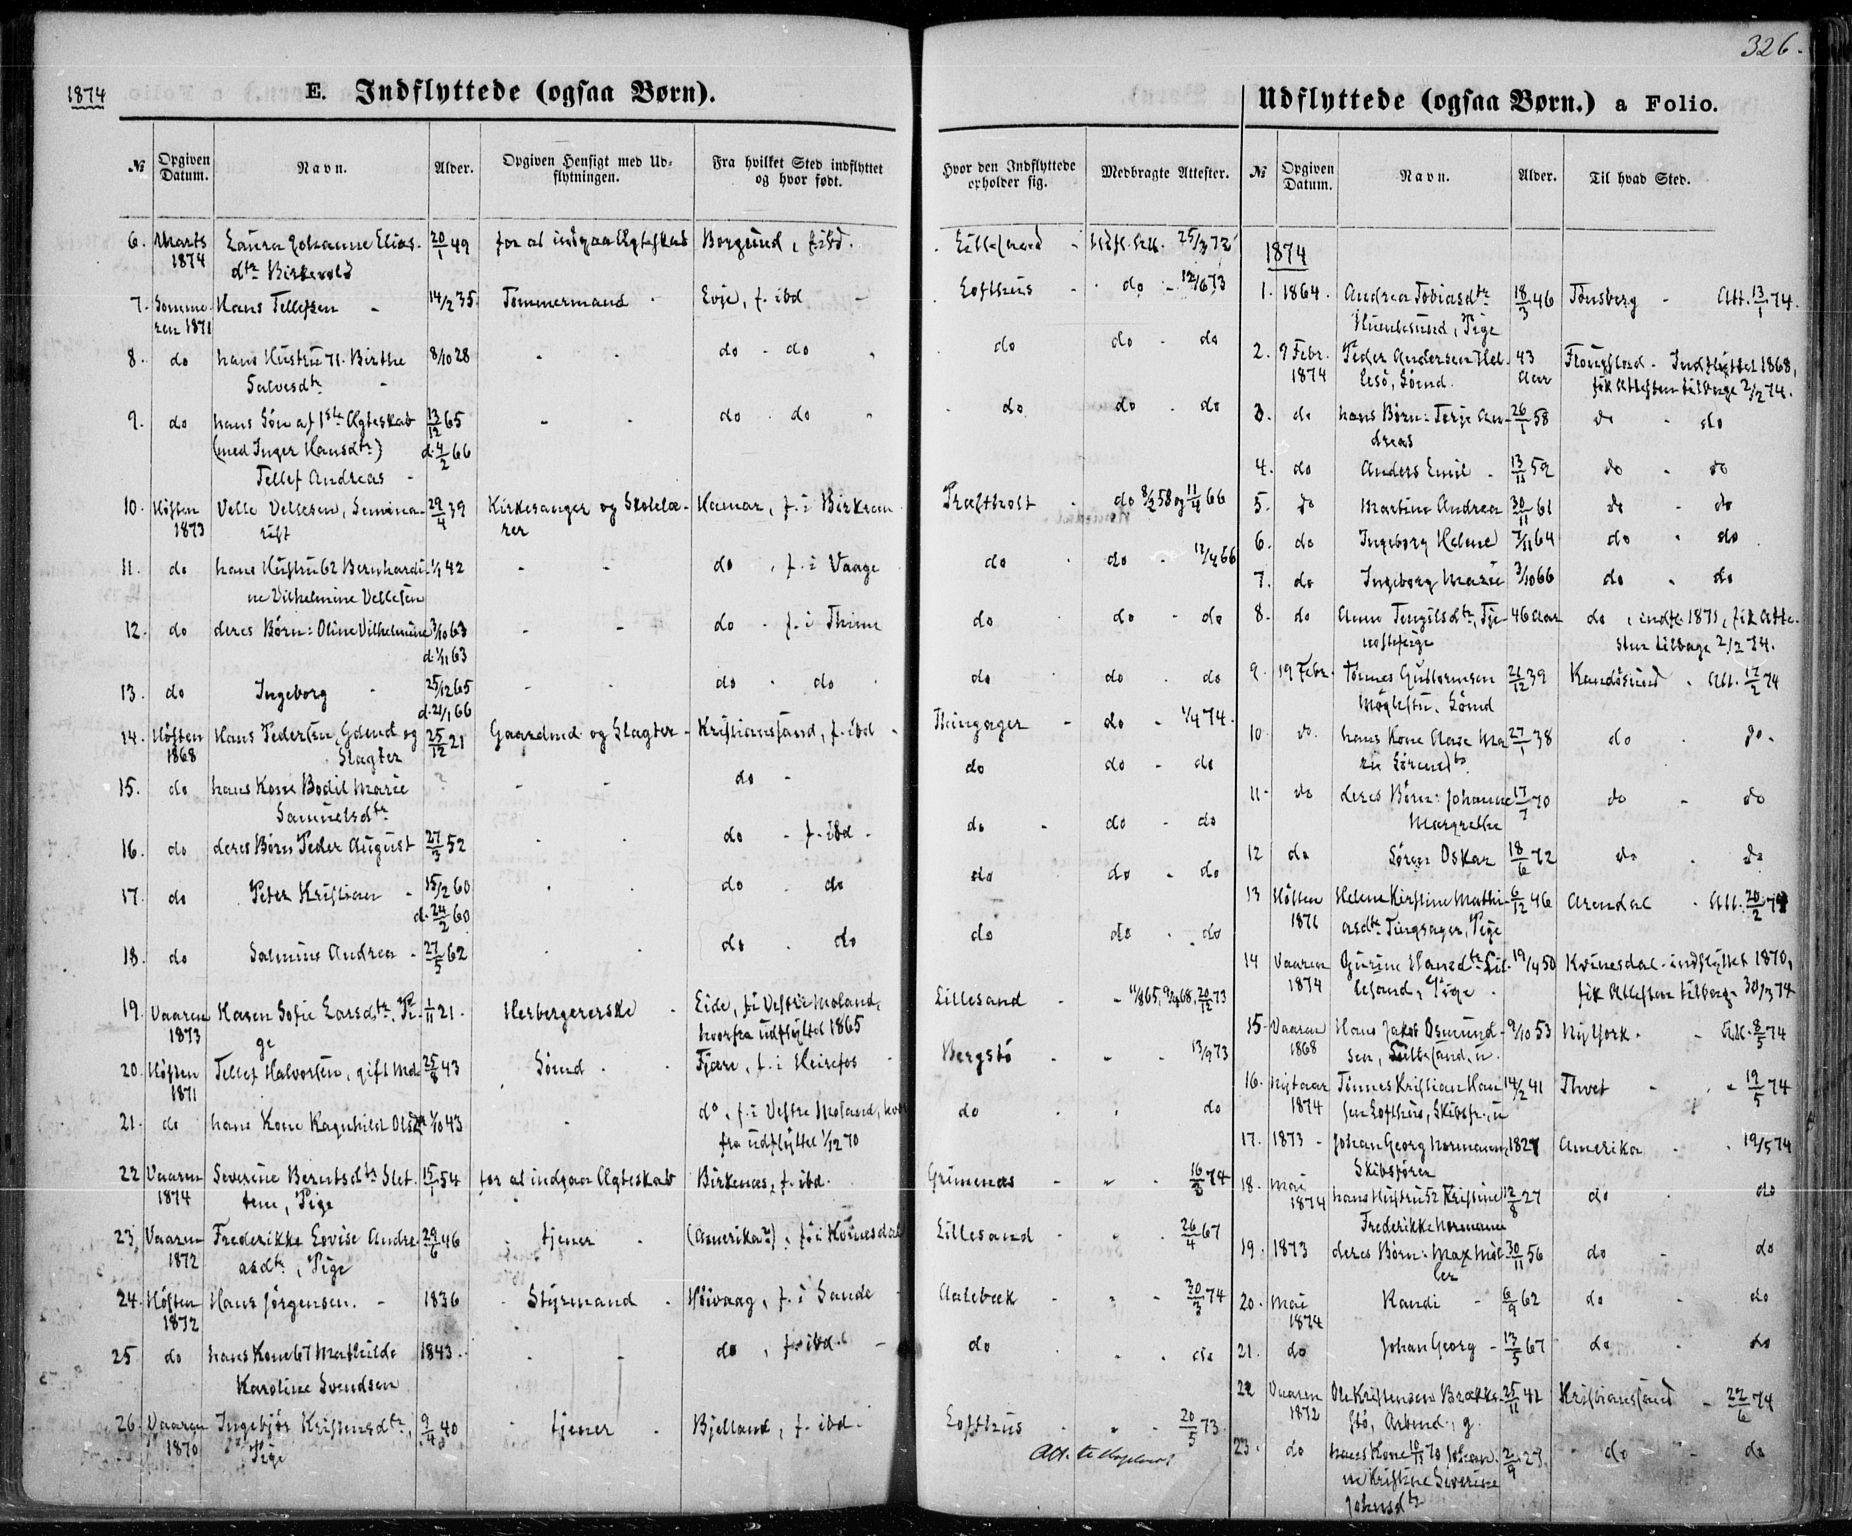 326.
1874
E. Indflyttede (ogsaa Børn).
№ Opgiven Datum. Navn. Alder. Opgiven Hensigt med Udflytningen. Fra hvilket Sted indflyttet og hvor født. Hvor den Indflyttede opholder sig. Medbragte Attester.
6. Marts 1874 Laura Johanne Eliasdtr Birkevold 20/1 49 for at indgaa Ægteskab Borgund, f. ibd. Lillesand 25/3 72
7. Sommeren 1871 Hans Tellefsen 14/2 35. Tømmermand Evje, f. ibd Lofthus do 12/6 73
8. do hans Hustru 71. Birthe Salvesdtr 8/10 28 do - do do do do
9. do hans Søn af 1ste Ægteskab (med Inger Hansdtr) Tellef Andreas 13/12 65 d. 4/2 66 do do do do do
10. Høsten 1873 Velle Vellesen, Seminarist 29/4 39 Kirkesanger og Skolelærer Hamar, f. i Birkenes Præstholt do 8/2 58 og 11/4 66
11. do hans Hustru 62 Bernhardine Vilhelmine Vellesen 1/1 42 do, f. i Vaage do do 12/4 66
12. do deres Børn: Oline Vilhelmine 3/10 63 d. 1/11 63 do f. i Thime do do - do
13. do Ingeborg 25/12 65 d. 21/1 66 do do do do do
14. Høsten 1868 Hans Pedersen, Gdmd og Slagter 25/12 21 Gaardmd og Slagter Kristianssand, f. ibd Thingager do 1/4 74.
15. do hans Kone Bodil Marie Samuelsdtr ? do do do do
16. do deres Børn Peder August 27/3 52 do - f. ibd do do do
17. do Peter Kristian 15/2 60 d. 24/2 60 do do do do do
18. do Salmine Andrea 27/5 62 do do do do do
19. Vaaren 1873 Karen Sofie Larsdtr, Pige 1/11 21. Herbergererske Eide, f. i Vestre Moland, hvorfra udflyttet 1865 Lillesand 11/8 65, 9/4 68, 20/12 73
20. Høsten 1871 Tellef Halvorsen, gift Md 25/8 43 Sømd Fjære, f. i Heirefos Bergstø 13/9 73
21. do hans Kone Ragnhild Olsdtr 1/10 43 do, f. i Vestre Moland, hvorfra udflyttet 1/12 70 do do
22 Vaaren 1874 Severine Berntsdtr Slettene, Pige 15/1 54 for at indgaa Ægteskab Birkenæs, f. ibd. Grimenæs 16/3 74
23. Vaaren 1872 Frederikke Lovise Andreasdtr, Pige 29/6 46 tjener (Amerika), f. i Kvinesdal Lillesand 26/4 67
24. Høsten 1872 Hans Jørgensen. 1836 Styrmand Høivaag, f. i Sande Aalebæk 30/3 74
25 do hans Kone 67 Mathilde Karoline Svendsen 1843. do, f. ibd. do do
26. Vaaren 1870 Ingebjør Kristensdtr, Pige 9/4 40 tjener Bjelland, f. ibd. Lofthus 20/5 73.
Udflyttede (ogsaa Børn.) a Folio.
№ Opgiven Datum. Navn. Alder. Til hvad Sted.
1874
1. 1864. Andrea Tobiasdtr, Pige 18/3 46 Tønsberg Att. 13/1 74.
2. 9 Febr. 1874 Peder Andersen Hellesø, Sømd. 43 Aar Flougstad. Indflyttet 1868, fik Attesten tilbage 2/2 74.
3. do hans Børn: Terje Andreas 26/1 58 do do
4. do Anders Emil 59 do do
5. do Martine Andrea 30/11 61 do do
6. do Ingeborg Helene 7/11 64 do do
7. do Ingeborg Marie 3/10 66 do do
8. do Anne Tengilsdtr, Tjenestepige 46 Aar do, indfl. 1871, fik Attesten tilbage 2/2 74.
9. 19 Febr. Tønnes Guttormsen Møglestu. Sømd 21/12 39 Randøsund Att. 17/2 74
10. do. hans Kone Aase Marie Sørensdtr 27/1 38 do do.
11. do deres Børn: Johanne Margrethe 17/7 70 do do
12 do Søren Oskar 18/6 72 do do
13 Høsten 1871 Helene Kirstine Mathiasdtr Tingsager, Pige 6/12 46 Arendal Att. 20/2 74
14 Vaaren 1874 Gurine Hansdtr Lillesand, Pige 19/4 50 Kvinesdal - indflyttet 1870, fik Attesten tilbage 30/3 74
15. Vaaren 1868 Hans Jakob Osmundsen, Lillesand, u. 9/10 53 Ny York. Att. 8/5 74
16. Nytaar 1874 Tønnes Kristian Hansen Lofthus, Skibsfr., u 14/2 41 Thvet 19/5 74
17. 1873 Johan Georg Normann, Skibsfører 1827 Amerika 19/5 74
18. Mai 1874 hans Hustru 52 Kristine Frederikke Normann 12/8 27 do do
19. 1873 deres Børn: Max Møller 30/11 56 do do
20. Mai 1874 Randi 6/9 62 do do
21. do Johan Georg 13/5 67 do do
22 Vaaren 1872 Ole Kristensen Brækkestø, Arbmd., g. 25/11 42 Kristianssand 22/6 74
23. do hans Kone 70 Johanne Kristine Severine Johnsdtr 2/9 27. do do